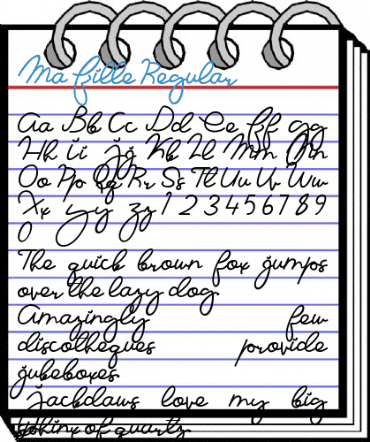 Ma fille Regular
Aa Bb Cc Dd Ee Ff Gg
Hh Ii Jj Kk Ll Mm Nn
Oo Pp Qq Rr Ss Tt Uu Vv Ww
Xx yy zz 1 2 3 4 5 6 7 8 9
0
The quick brown fox jumps
over the lazy dog.
Amazingly few
discotheques provide
jukeboxes
Jackdaws love my big
sphinx of quartz